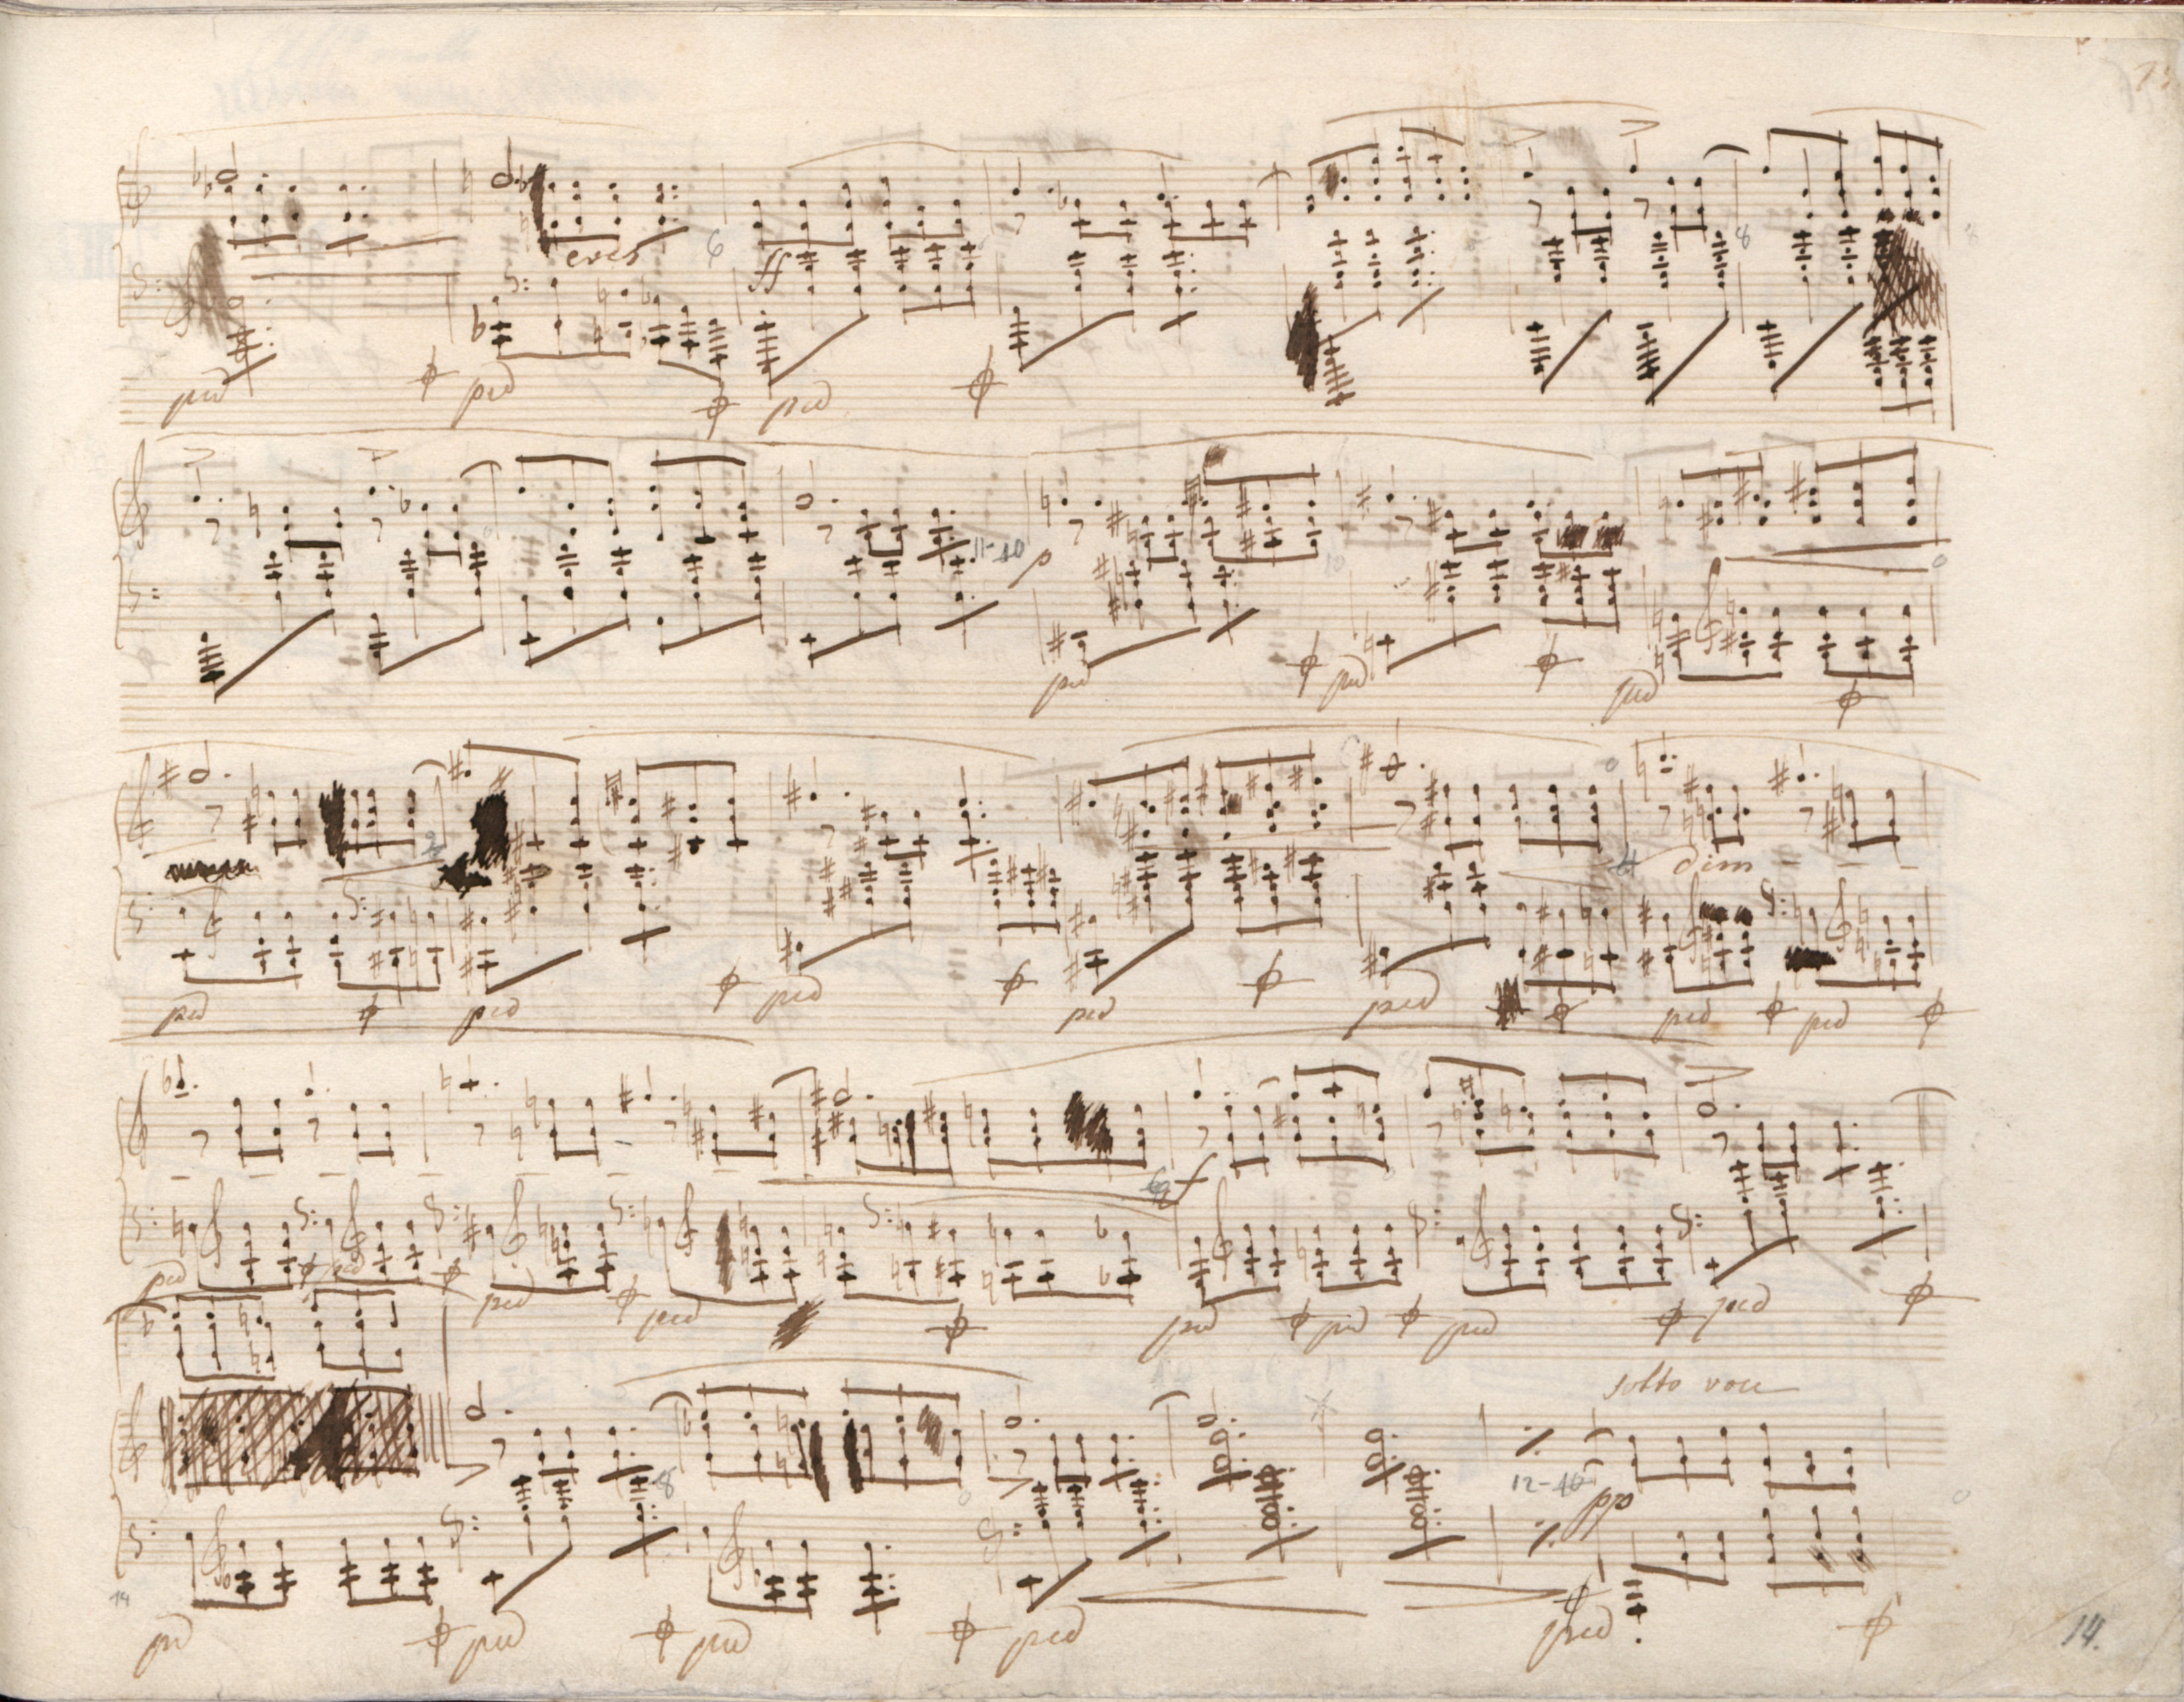 cres 6
ff 8
ped ped ped
11-10 p
ped ped ped
4 dim - - -
ped ped ped ped ped ped ped
f
ped ped ped ped ped ped ped ped
sotto voce
8 12-10 pp
14
ped ped ped ped ped
14.